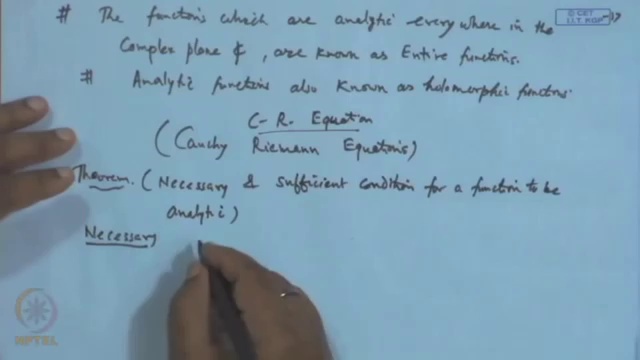 # The functions which are analytic every where in the
Complex plane ₵, are known as Entire functions.
# Analytic functions also known as holomorphic functions.
C-R. Equation
(Cauchy Riemann Equations)
Theorem. (Necessary & sufficient condition for a function to be
analytic)
Necessary
© CET
I.I.T. KGP
NPTEL